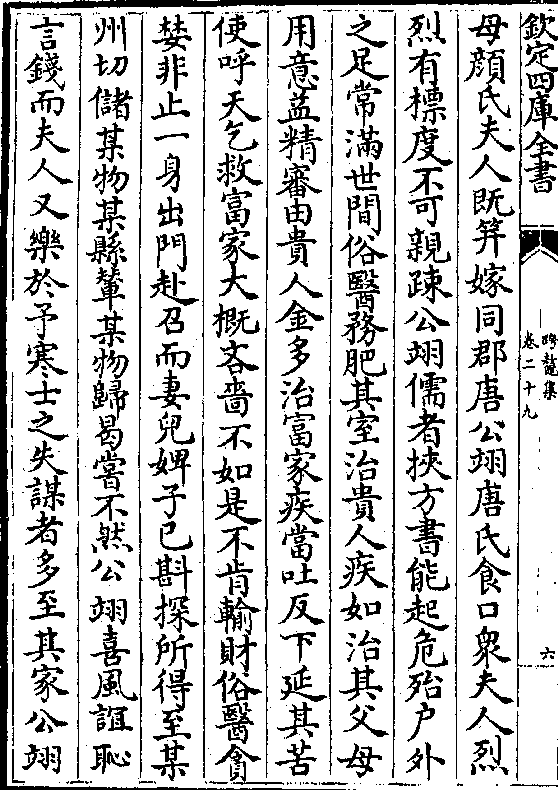 欽定四庫全書
跨鼇集
卷二十九
六
母顔氏夫人既笄嫁同郡唐公翊唐氏食口衆夫人烈
烈有標度不可親疎公翊儒者挾方書能起危殆户外
之足常滿世間俗醫務肥其室治貴人疾如治其父母
用意益精審由貴人金多治富家疾當吐反下延其苦
使呼天乞救富家大概吝嗇不如是不肯輸財俗醫貪
婪非止一身出門赴召而妻兒婢子已斟探所得至某
州切儲某物某縣輦某物歸曷嘗不然公翊喜風誼恥
言錢而夫人又樂於予寒士之失謀者多至其家公翊